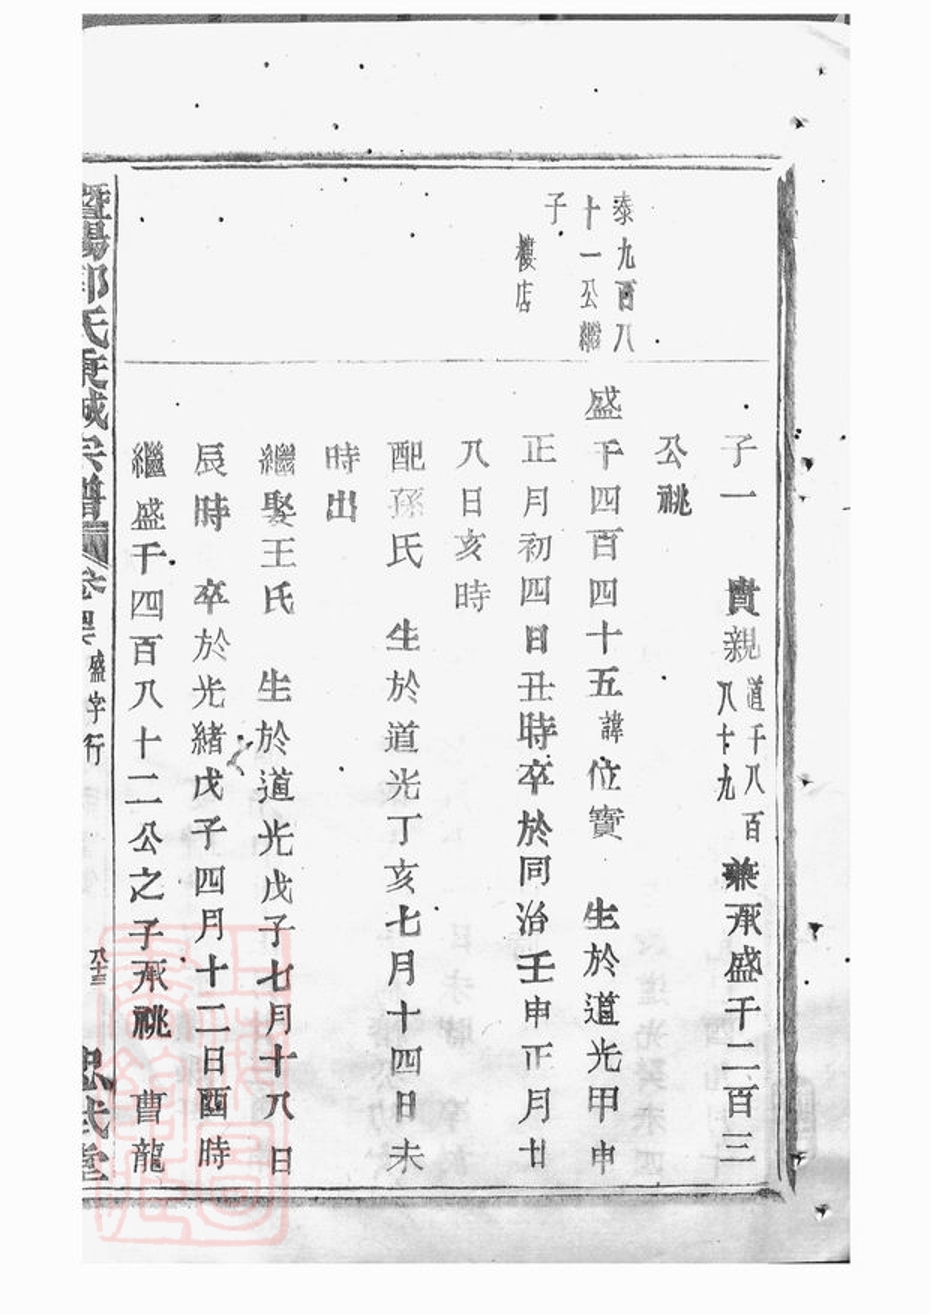 子一 貴親道千八百八十九兼承盛千二百三
公祧
泰九百八
十一公繼
子
樓店
盛千四百四十五諱位寶 生於道光甲申
正月初四日丑時卒於同治壬申正月廿
八日亥時
配孫氏 生於道光丁亥七月十四日未
時出
繼娶王氏 生於道光戊子七月十八日
辰時 卒於光緒戊子四月十二日酉時
繼盛千四百八十二公之子承祧 曹龍
暨陽郭氏東城宗譜 盛字行 忠武堂